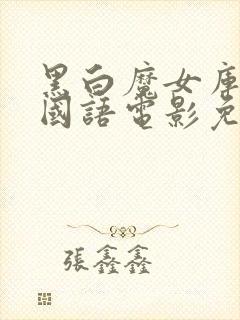 黑白魔女庫
國語電影免
張鑫鑫